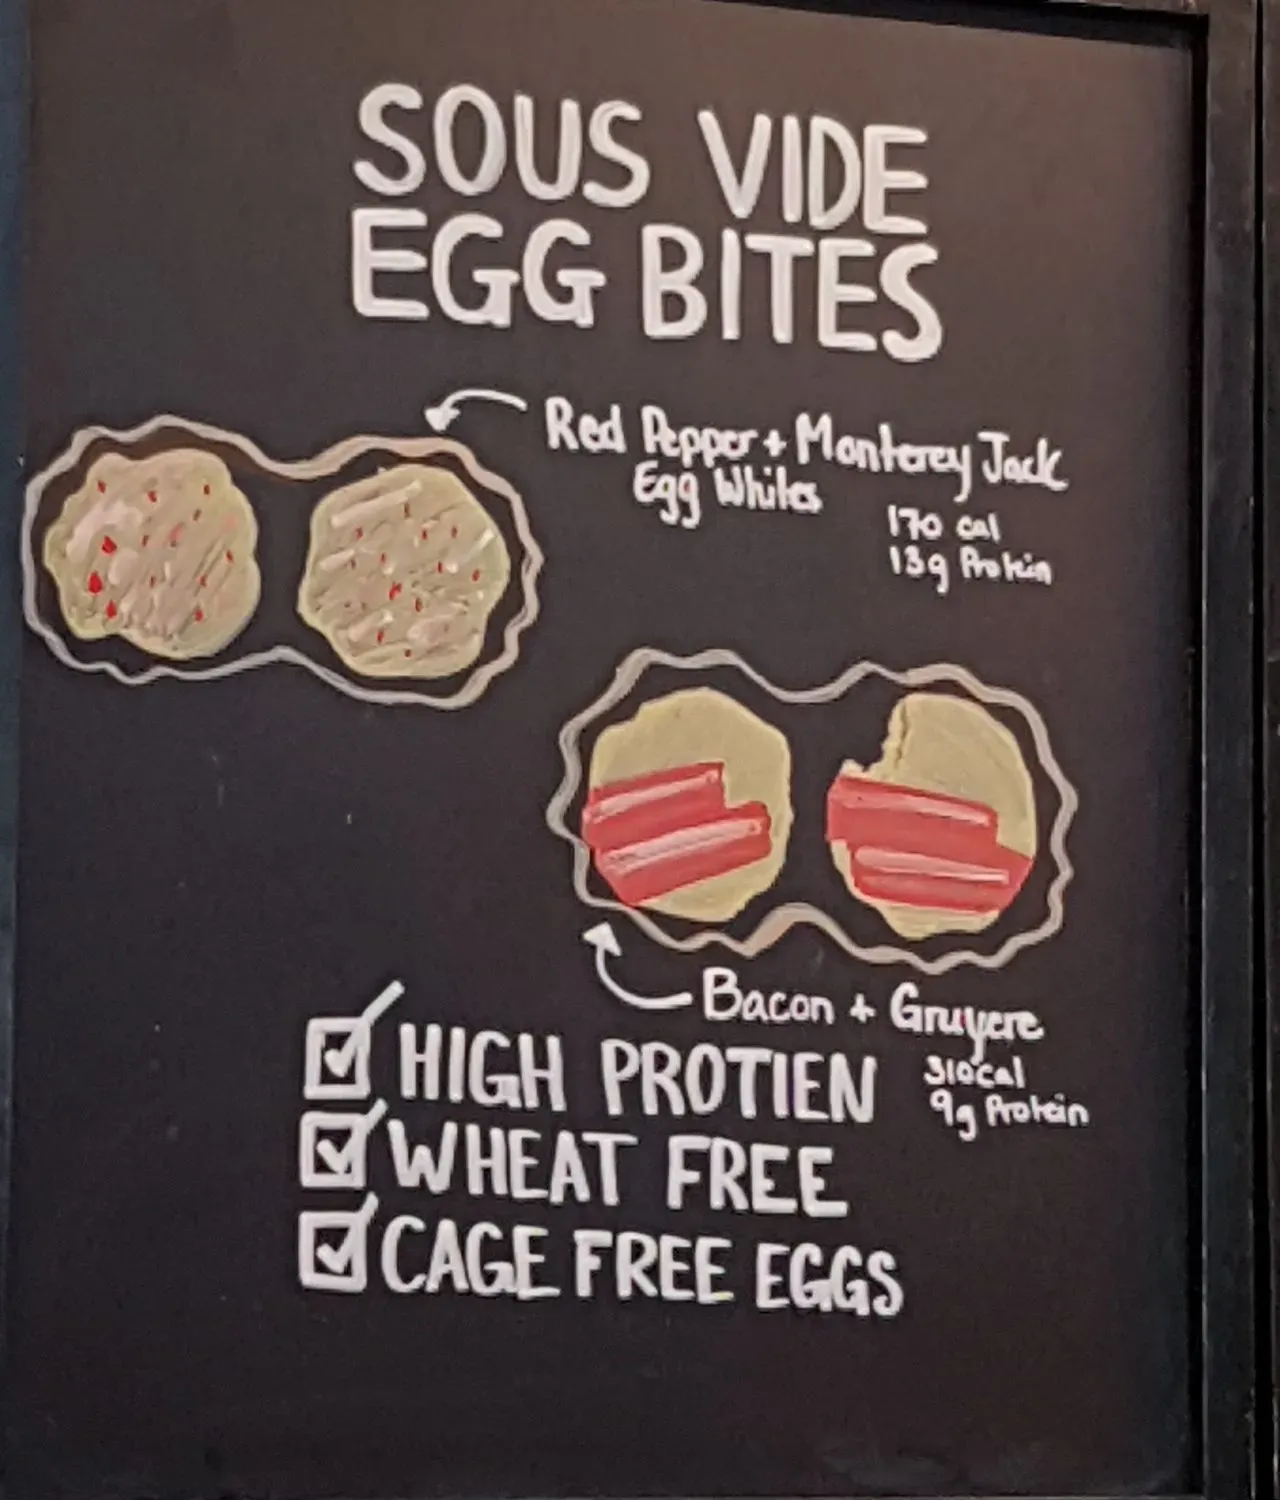 SOUS VIDE
EGG BITES
Red Pepper + Monterey Jack
Egg Whites
170 cal
13g Protein
Bacon + Gruyere
310cal
9g Protein
HIGH PROTIEN
WHEAT FREE
CAGE FREE EGGS